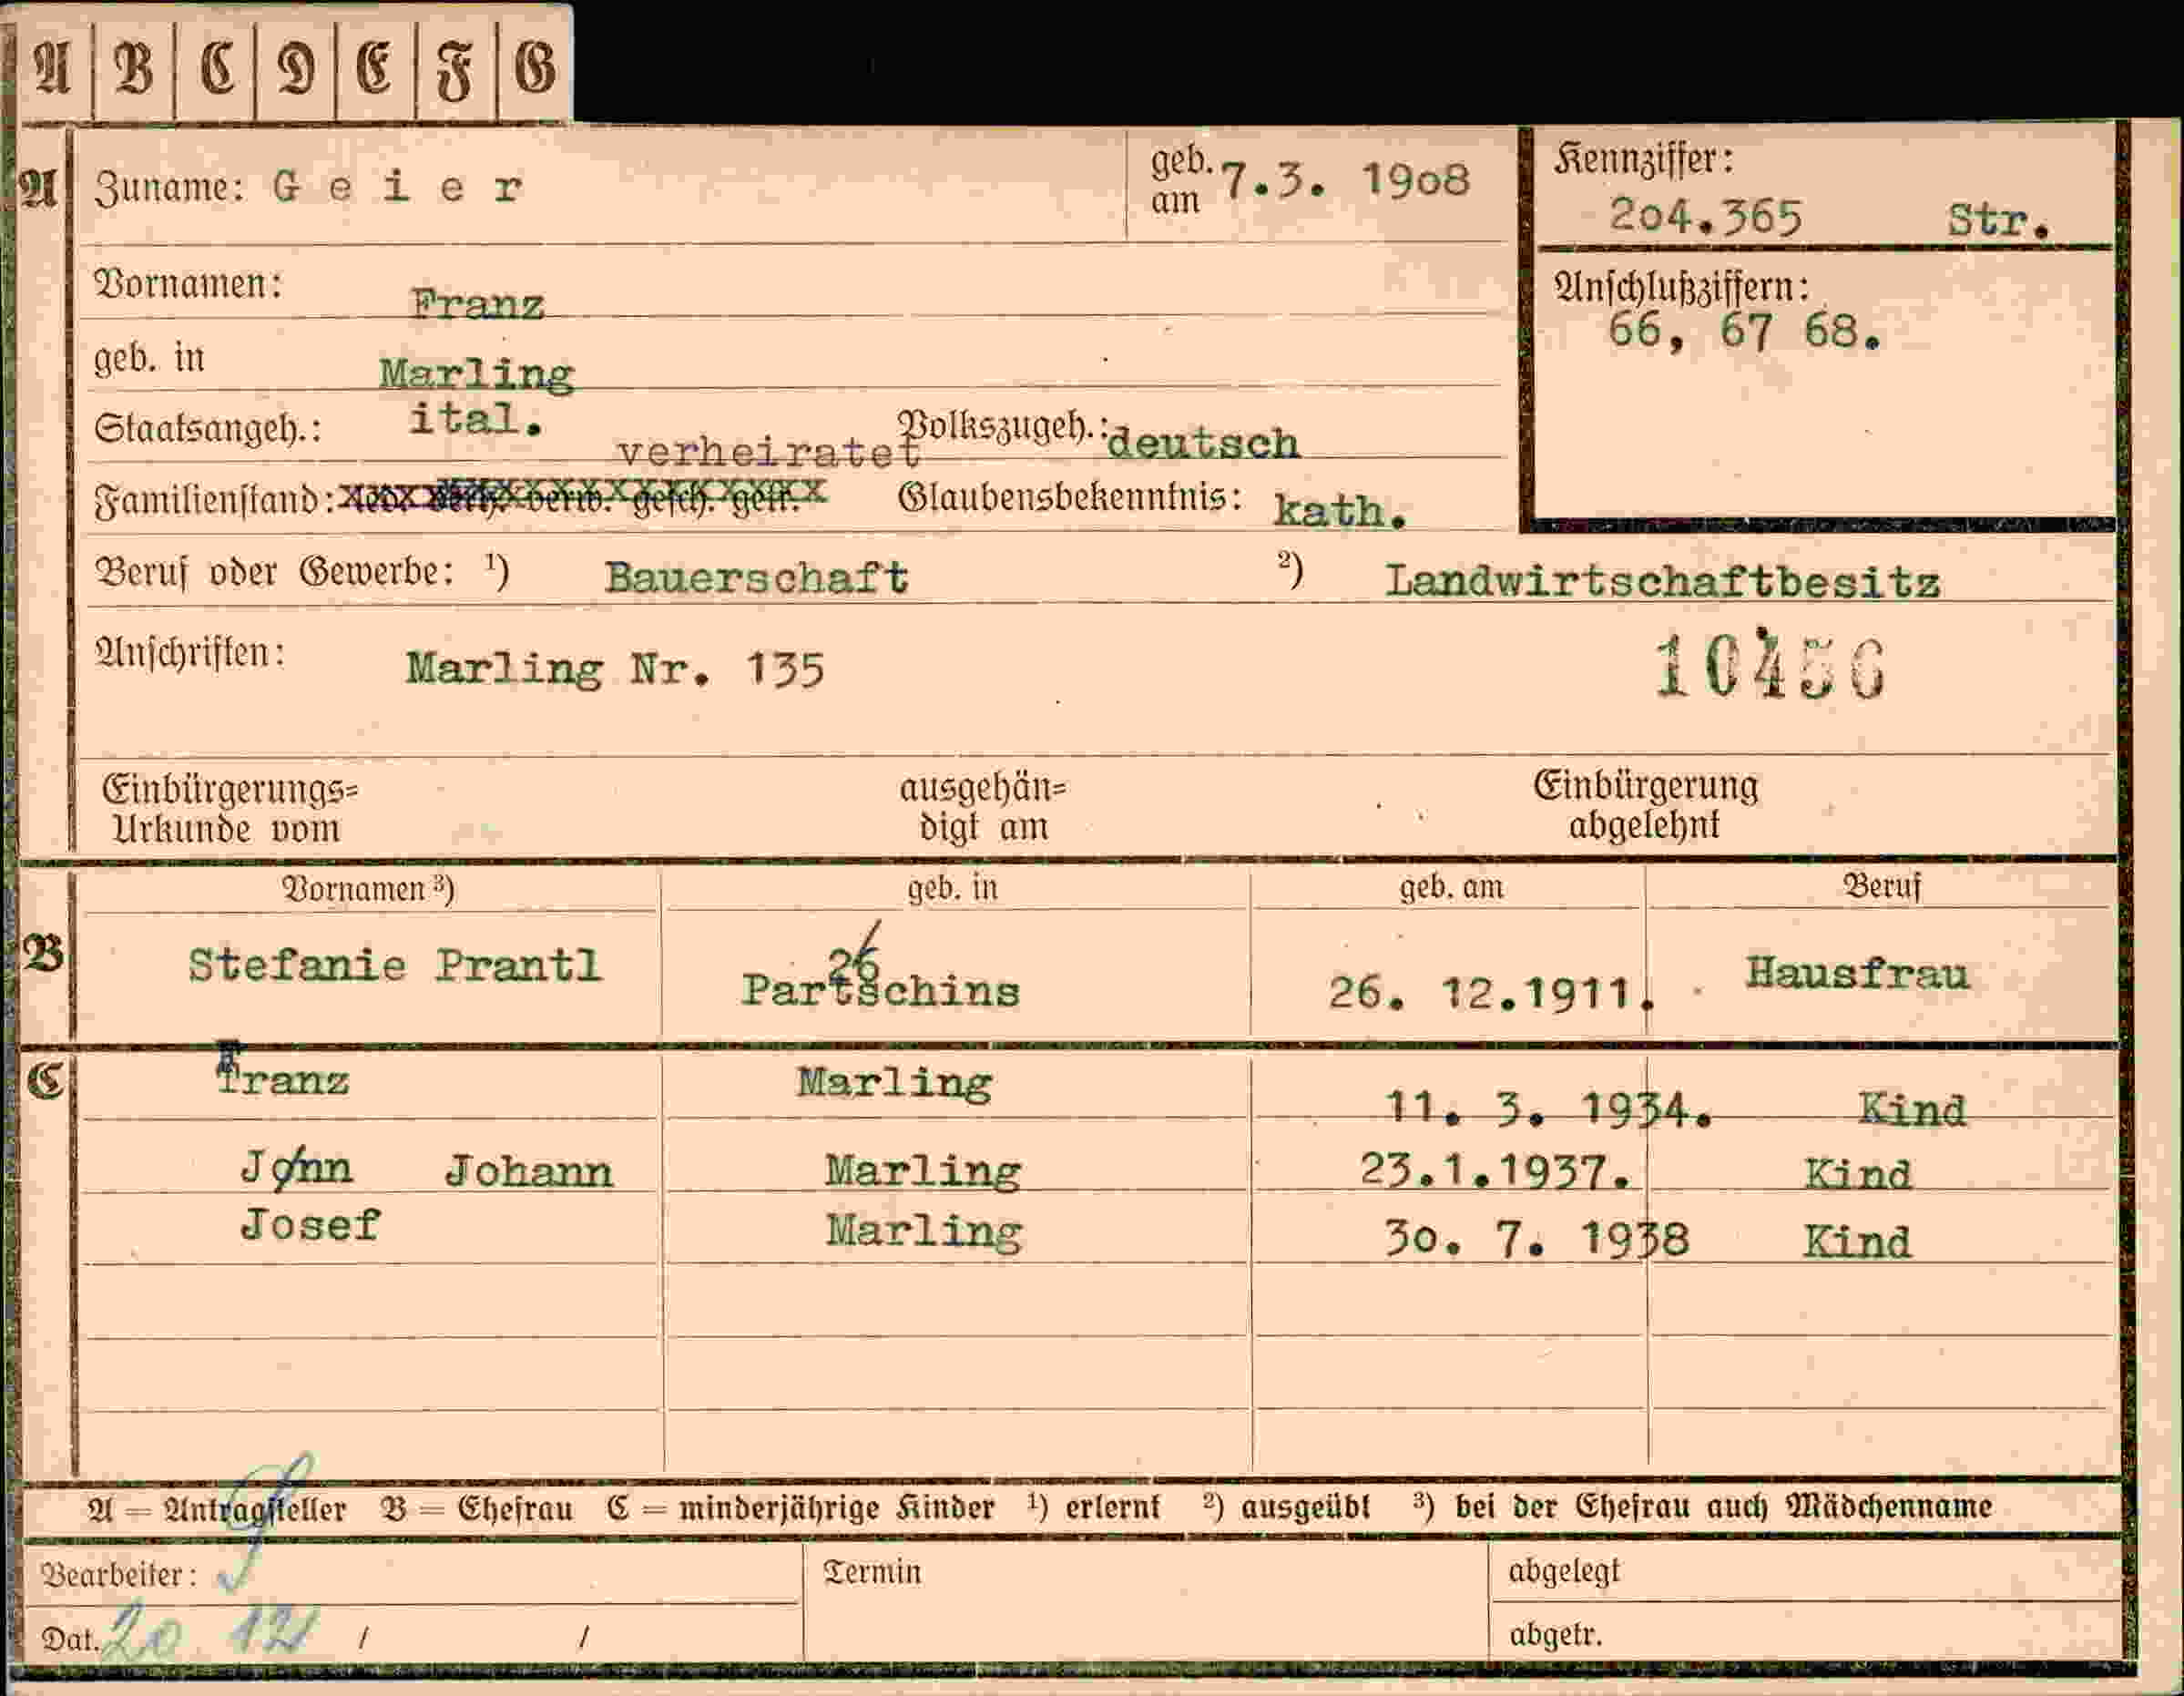 A B C D E F G
A Zuname: Geier geb. am 7.3. 1908
Kennziffer:
204.365 Str.
Vornamen: Franz
Anschlußziffern:
66, 67 68.
geb. in Marling
Staatsangeh.: ital. Volkszugeh.: deutsch
verheiratet
Familienstand: verw. gesch. getr. Glaubensbekenntnis: kath.
Beruf oder Gewerbe: ¹) Bauerschaft ²) Landwirtschaftbesitz
Anschriften: Marling Nr. 135
Einbürgerungs=
Urkunde vom
ausgehän=
digt am
Einbürgerung
abgelehnt
Vornamen ³) geb. in geb. am Beruf
26
B Stefanie Prantl Partschins 26. 12.1911. Hausfrau
C Franz Marling 11. 3. 1934. Kind
Jonn Johann Marling 23.1.1937. Kind
Josef Marling 30. 7. 1938 Kind
A = Antragsteller B = Ehefrau C = minderjährige Kinder ¹) erlernt ²) ausgeübt ³) bei der Ehefrau auch Mädchenname
Bearbeiter: Termin abgelegt
Dat. 20 12 / / abgetr.